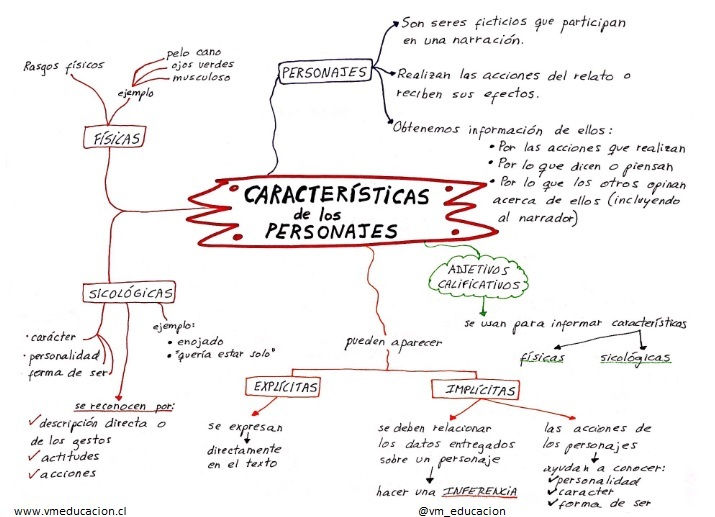 CARACTERÍSTICAS
de los
PERSONAJES
PERSONAJES
Son seres ficticios que participan
en una narración.
Realizan las acciones del relato o
reciben sus efectos.
Obtenemos información de ellos:
• Por las acciones que realizan
• Por lo que dicen o piensan
• Por lo que los otros opinan
acerca de ellos (incluyendo
al narrador)
FÍSICAS
Rasgos físicos
ejemplo
pelo cano
ojos verdes
musculoso
SICOLÓGICAS
• carácter
• personalidad
forma de ser
ejemplo:
• enojado
• "quería estar solo"
se reconocen por:
✓ descripción directa o
de los gestos
✓ actitudes
✓ acciones
pueden aparecer
EXPLÍCITAS
se expresan
directamente
en el texto
IMPLÍCITAS
se deben relacionar
los datos entregados
sobre un personaje
hacer una INFERENCIA
las acciones de
los personajes
ayudan a conocer:
✓ personalidad
✓ caracter
✓ forma de ser
ADJETIVOS
CALIFICATIVOS
se usan para informar características
físicas
sicológicas
www.vmeducacion.cl
@vm_educacion